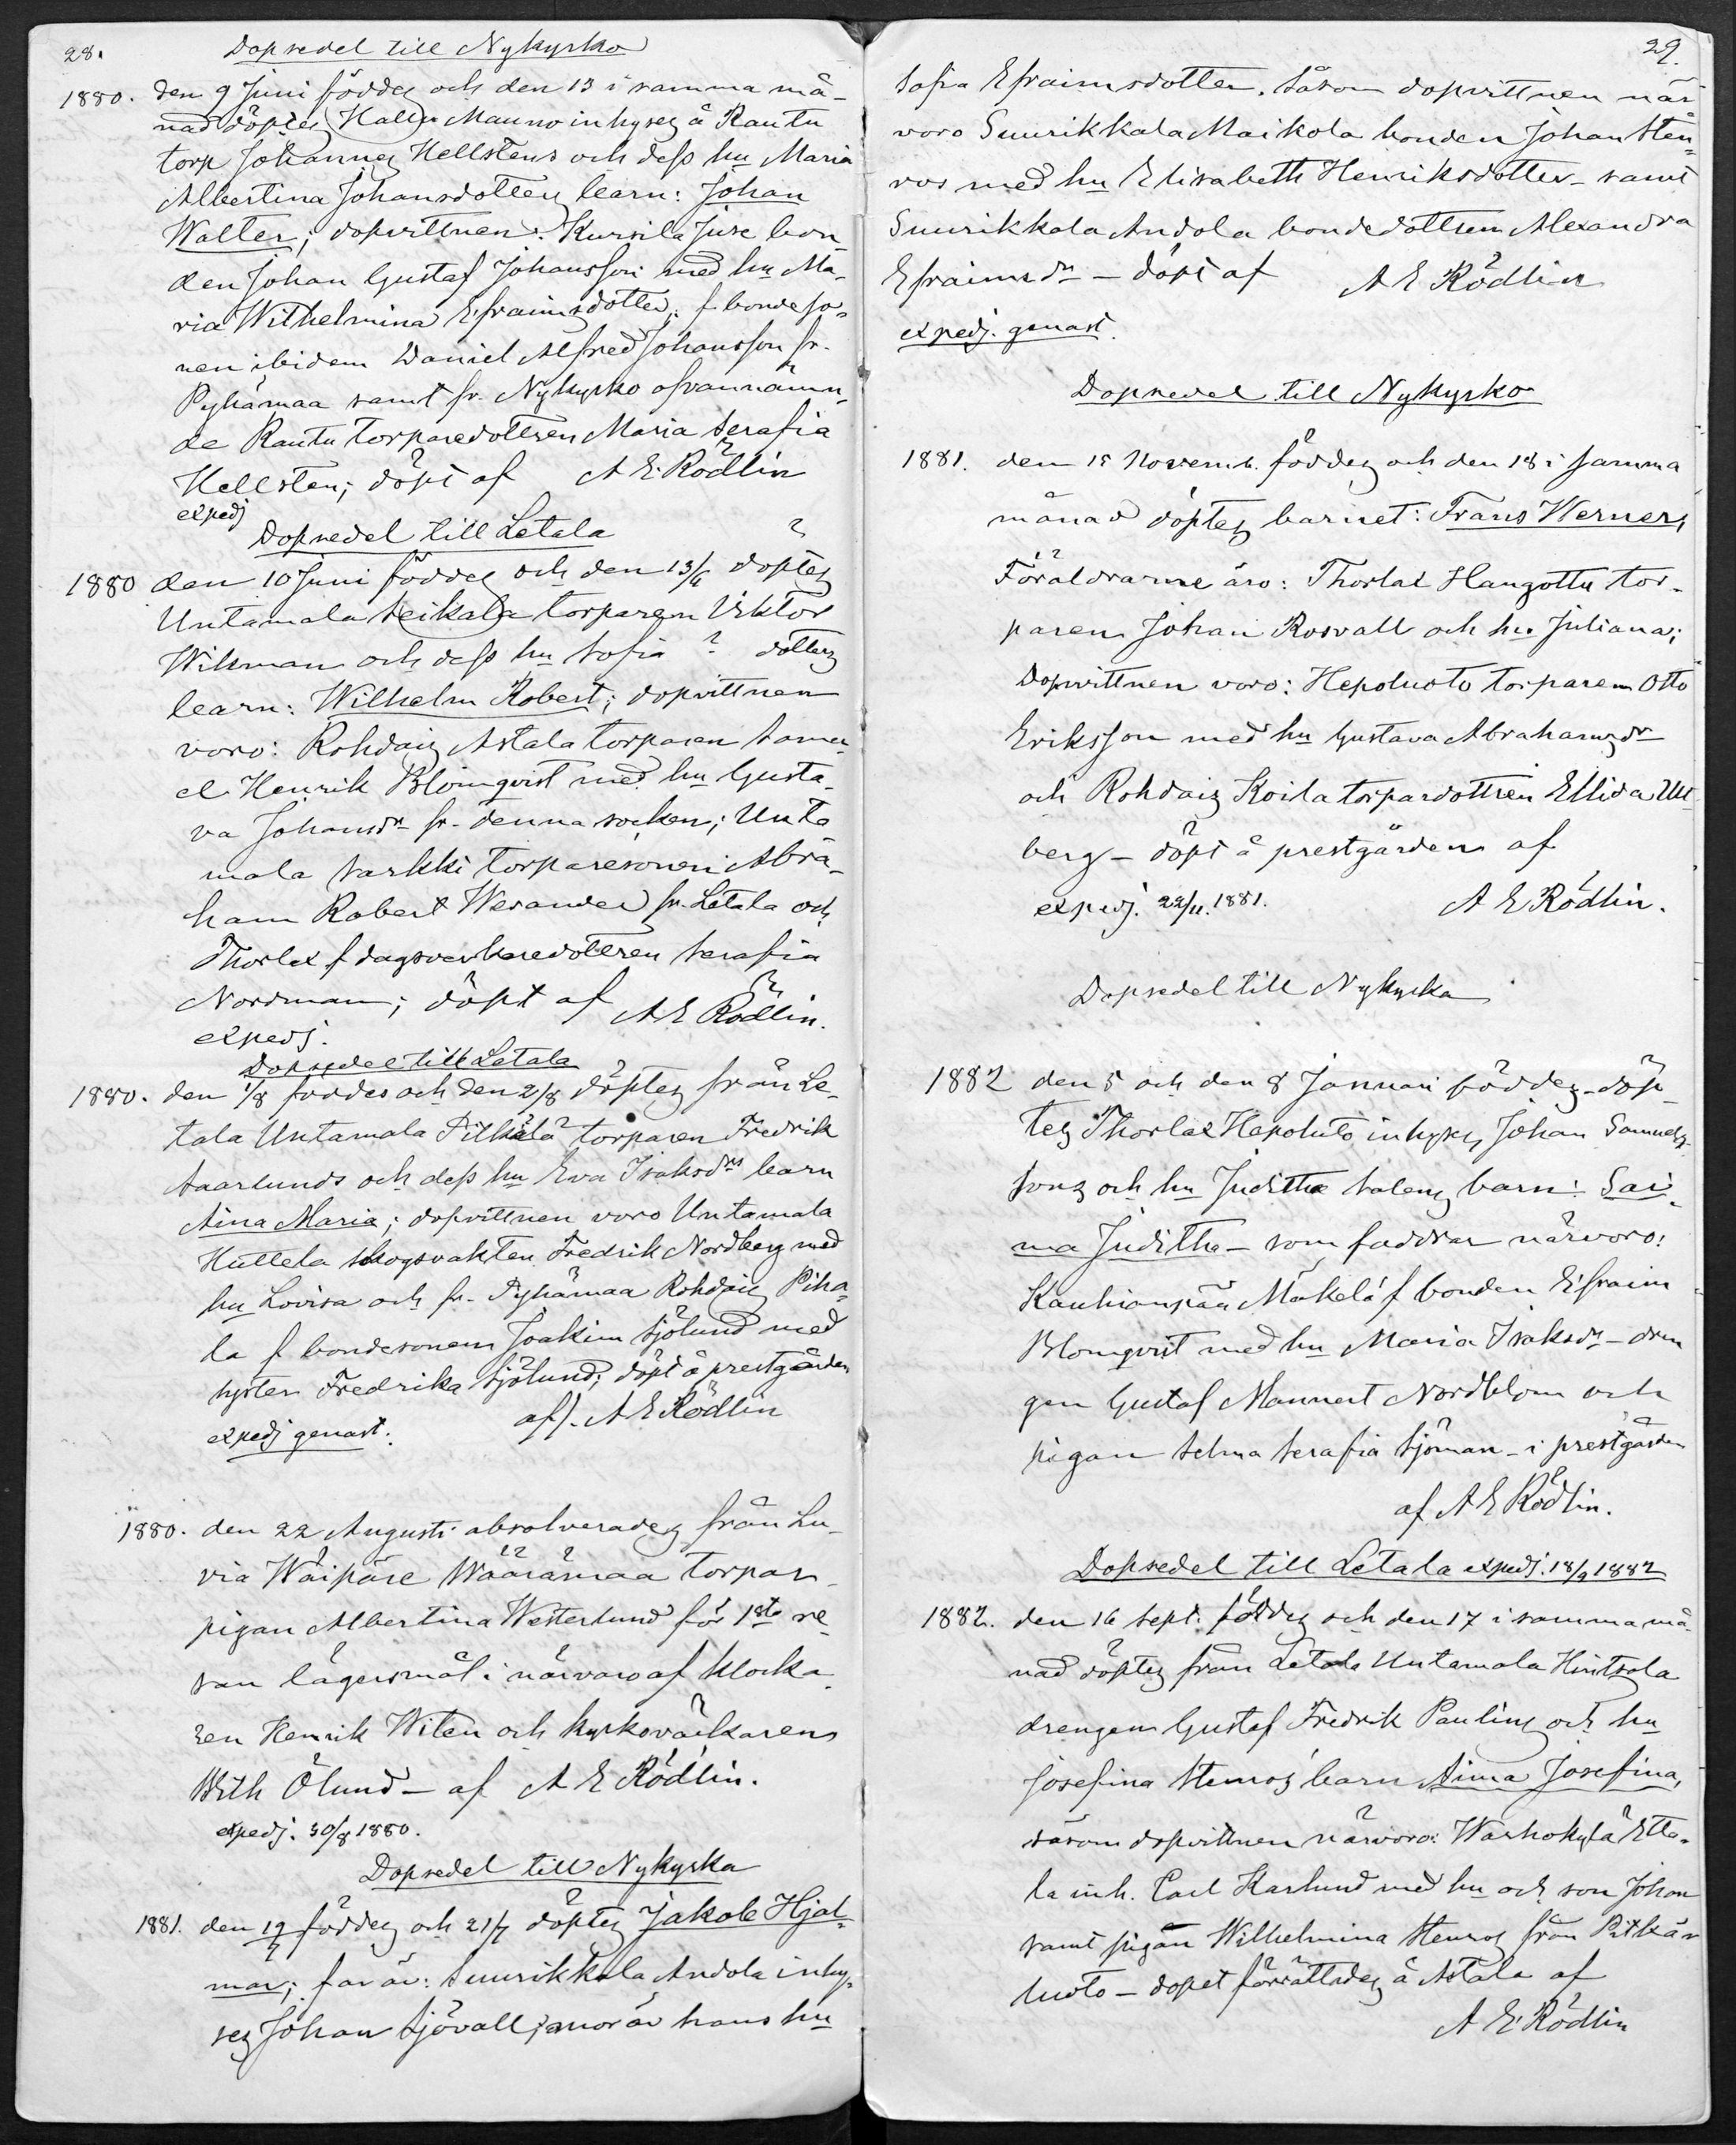 28.
Dopsedel till Nykyrko
1880. den 9 Juni föddes och den 13 i samma må-
nad döptes Halu Mauno inhyses å Rautu
torp Johannes Hellstens och dess hu Maria
Albertina Johansdotters barn: Johan
Walter; dopvittnen: Kursila Juse bon-
den Johan Gustaf Johansson med hu Ma-
ria Wilhelmina Efraimsdotter; f bondeso-
nen ibidem Daniel Alfred Johansson fr.
Pyhämaa samt fr. Nykyrko ofvannämn-
de Rautu torparedottren Maria Serafia
Hellsten; döpt af A E Rödlin
expedj
Dopsedel till Letala
1880 den 10 Juni föddes och den 13/6 döptes
Untamala Seikala torparen Viktor
Wikman och dess hu Sofia ? dotters
barn: Wilhelm Robert; dopvittnen
voro: Rohdais Astala torparen Samu-
el Henrik Blomqvist med hu Gusta-
va Johansdr fr. denna socken; Unta
mala Sarkki torparesonen Abra-
ham Robert Wesander fr. Letala och
Thorlax f dagsverkaredottren Serafia
Nordman; döpt af A E Rödlin.
expedj.
Dopsedel till Letala
1880. den 1/8 föddes och den 2/8 döptes från Le-
tala Untamala Pilkälä torparen Fredrik
Aaarlunds och dess hu Eva Isaksdrs barn
Aina Maria; dopvittnen voro Untamala
Hullela skogsvakten Fredrik Nordberg med
hu Lovisa och fr. Pyhämaa Rohdais Piha-
la f bondesonen Joakim Sjölund med
syster Fredrika Sjölund; döpt å prestgården
af/. A E Rödlin
expedj genast.
1880. den 22 Augusti absolverades från Lu-
via Wäipäre Wäärämaa torpar-
pigan Albertina Westerlund för 1sta re-
san lägersmål i närvaro af klocka-
ren Henrik Witen och kyrkoväktarens
Wilh Ölund - af A E Rödlin.
expedj. 30/8 1880.
Dopsedel till Nykyrka
1881. den 19/7 föddes och 21/7 döptes Jakob Hjal-
mar; far är: Suurikkala Andola inhy-
ses Johan Sjövall; mor är hans hu
29.
Sofia Efraimsdotter. Såsom dopvittnen när-
voro Suurikkala Maikola bonden Johan Sten-
ros med hu Elisabeth Henriksdotter - samt
Suurikkala Andola bondedottren Alexandra
Efraimsdr - döpt af A E Rödlin
expedj. genast.
Dopsedel till Nykyrko
1881. den 15 Novemb. föddes och den 18 i samma
månad döptes barnet: Frans Werner,
Föräldrarne äro: Thorlax Hangottu tor-
paren Johan Rosvall och hu Juliana;
Dopvittnen voro: Hepoluoto torparen Otto
Eriksson med hu Gustava Abrahamsdr
och Rohdais Koila torpardottren Ellida Ul-
berg - döpt å prestgården af
expedj. 22/11. 1881. A E Rödlin.
Dopsedel till Nykyrka
1882 den 5 och den 8 Januari föddes - döp-
tes Thorlax Hepoluto inhyses Johan Samuels-
sons och hu Juditha Salens barn: Sai-
ma Juditha - som faddrar närvoro:
Kauhianpää Mäkelä f bonden Efraim
Blomqvist med hu Maria Isaksdr - dren
gen Gustaf Mannert Nordblom och
pigan Selma Serafia Sjöman - i prestgården
af A E Rödlin.
Dopsedel till Letala expedj. 18/9 1882
1882. den 16 Sept. föddes och den 17 i samma må-
nad döptes från Letala Untamala Hintsala
drengen Gustaf Fredrik Paulins och hu
Josefina Stenros barn Aina Josefina,
såsom dopvittnen närvoro: Warhokylä Etta-
la inh. Carl Karlund med hu och son Johan
samt pigan Wilhelmina Stenros från Pitkä
luoto - dopet förrättades å Astala af
A E Rödlin